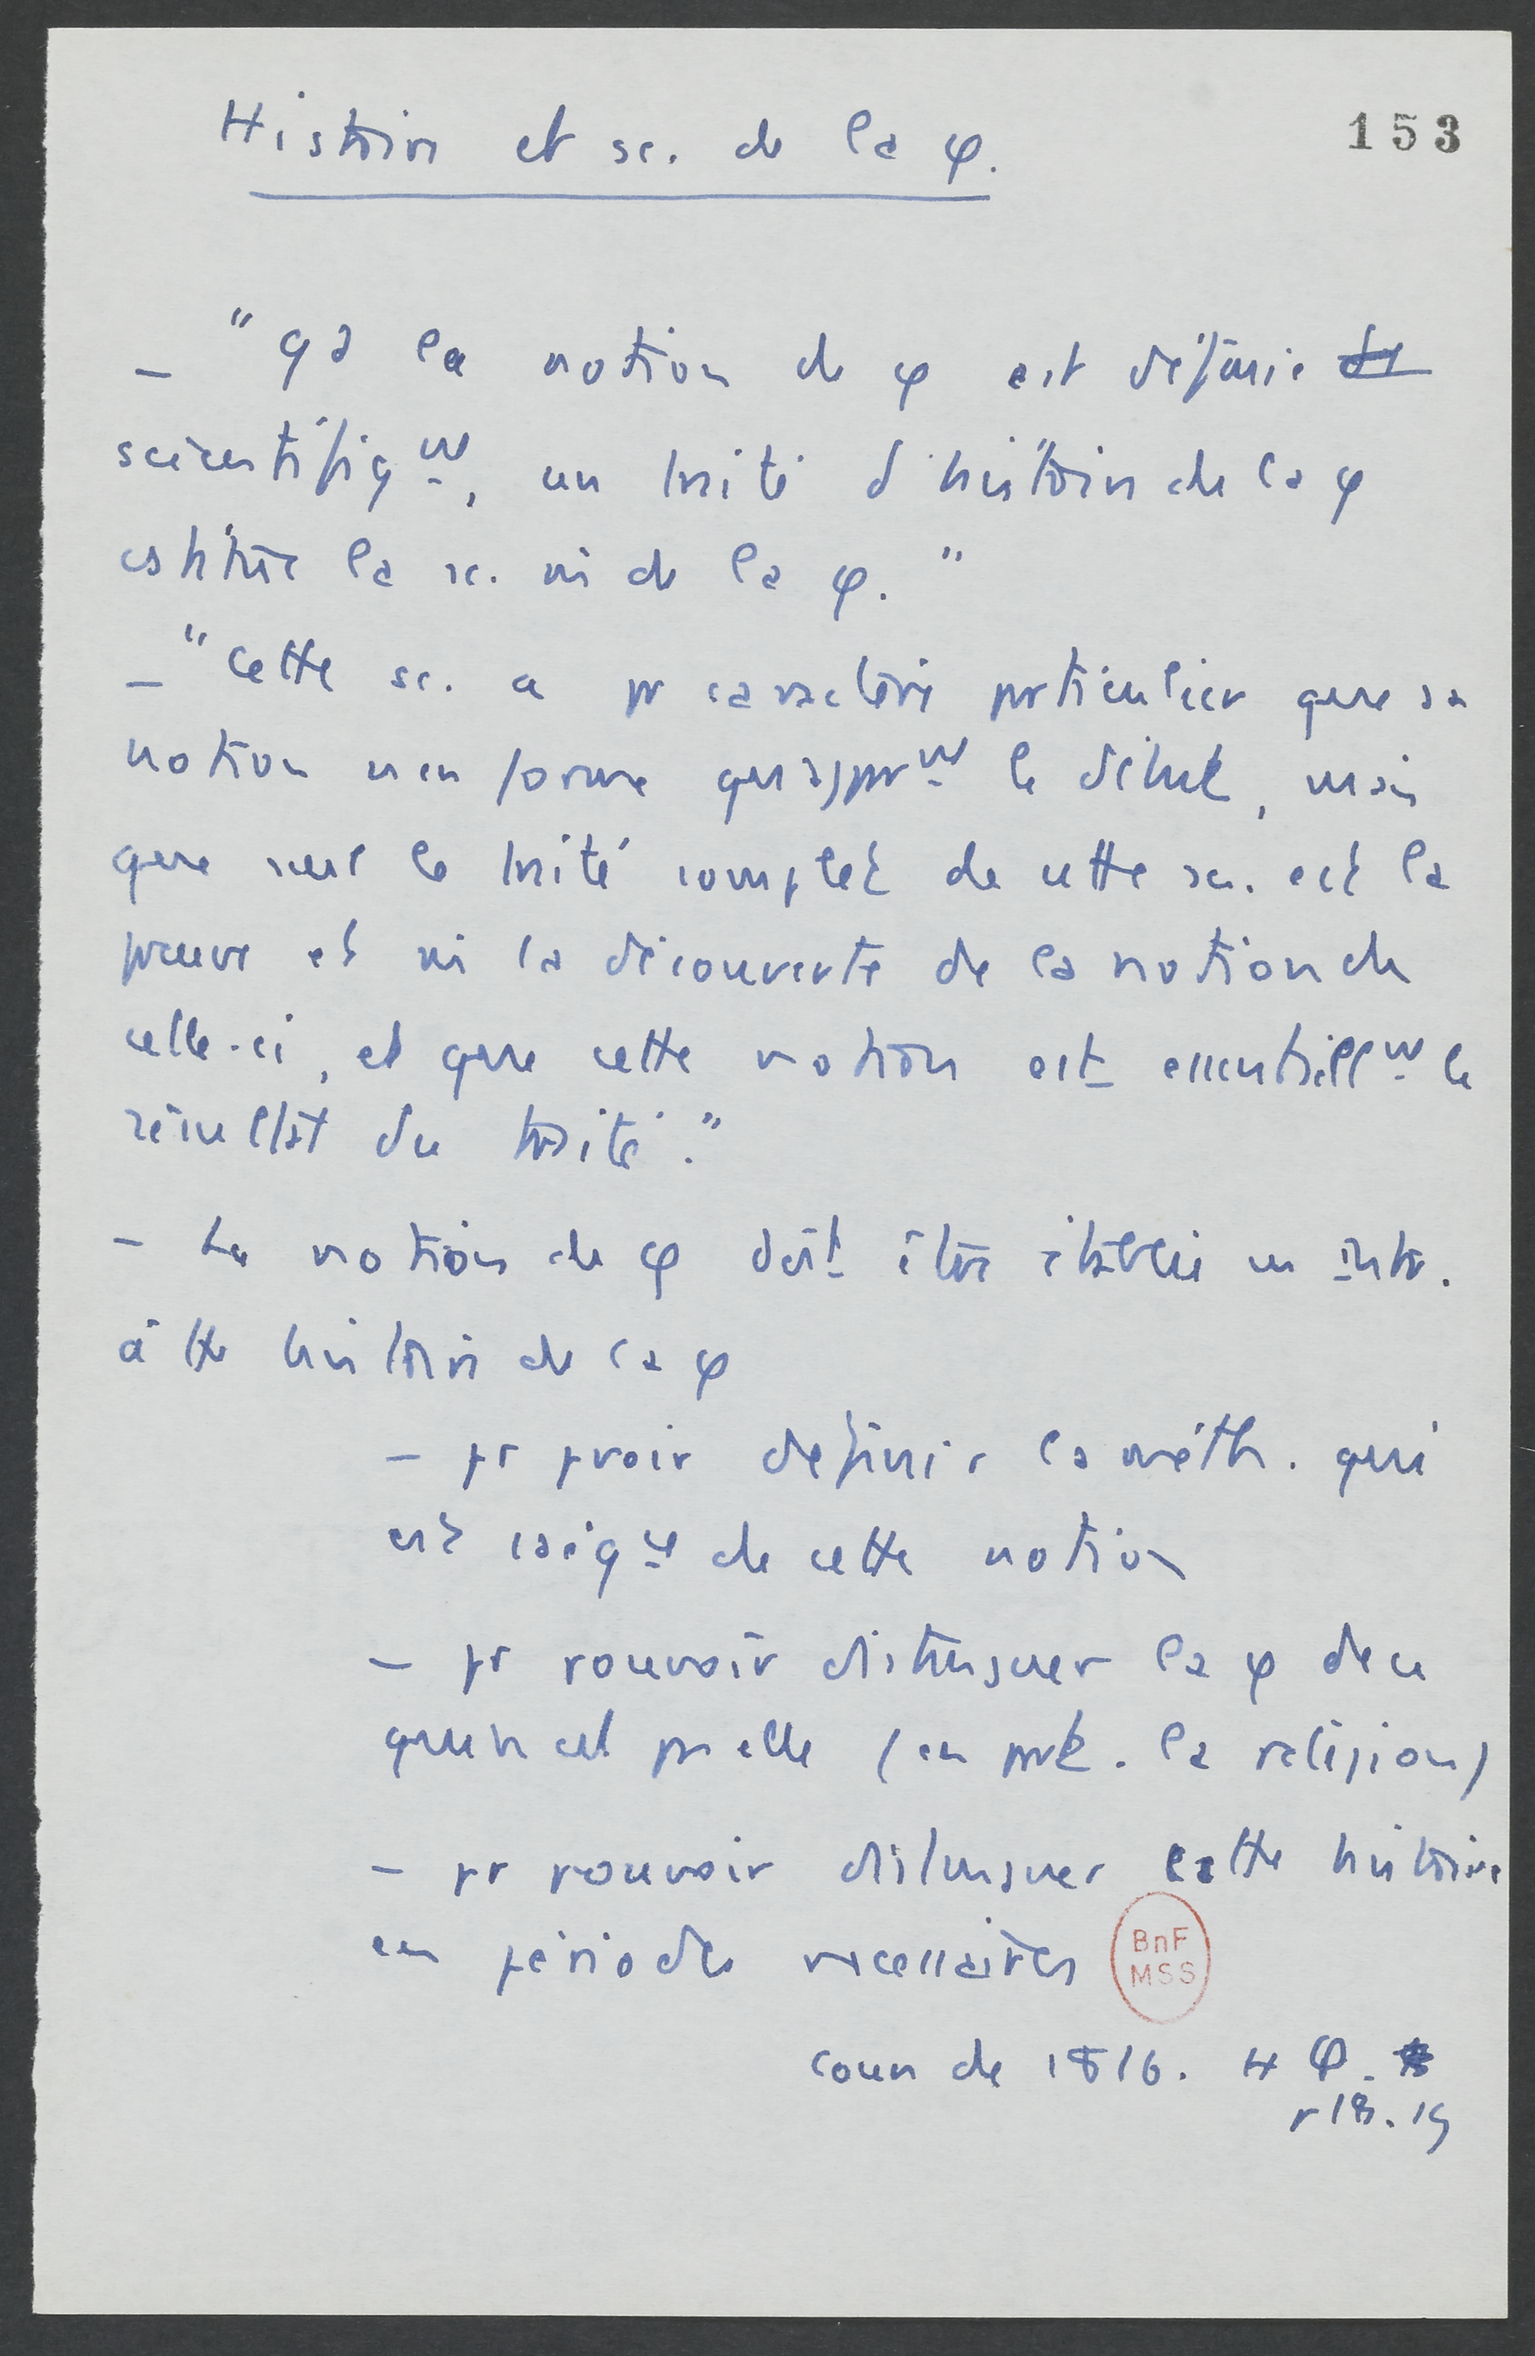 Histoire et sc. de la φ.
153
– "qd la notion de φ est définie de
scientifiqnt, un traité d'histoire de la φ
cstitue la sc. m de la φ."
– "Cette sc. a pr caractère particulier que sa
notion n'en forme qu'apprnt le début, mais
que seul le traité complet de cette sc. est la
preuve et m la découverte de la notion de
celle-ci, et que cette notion est essentiellnt le
résultat du traité."
– La notion de φ doit être établie en intr.
à tte histoire de la φ
– pr pvoir définir la méth. qui
est cséque de cette notion
– pr pouvoir distinguer la φ de ce
qui n'est pr elle (en prt. la religion)
– pr pouvoir distinguer cette histoire
en périodes nécessaires
BnF
MSS
Cours de 1816. H φ.
p 18.19